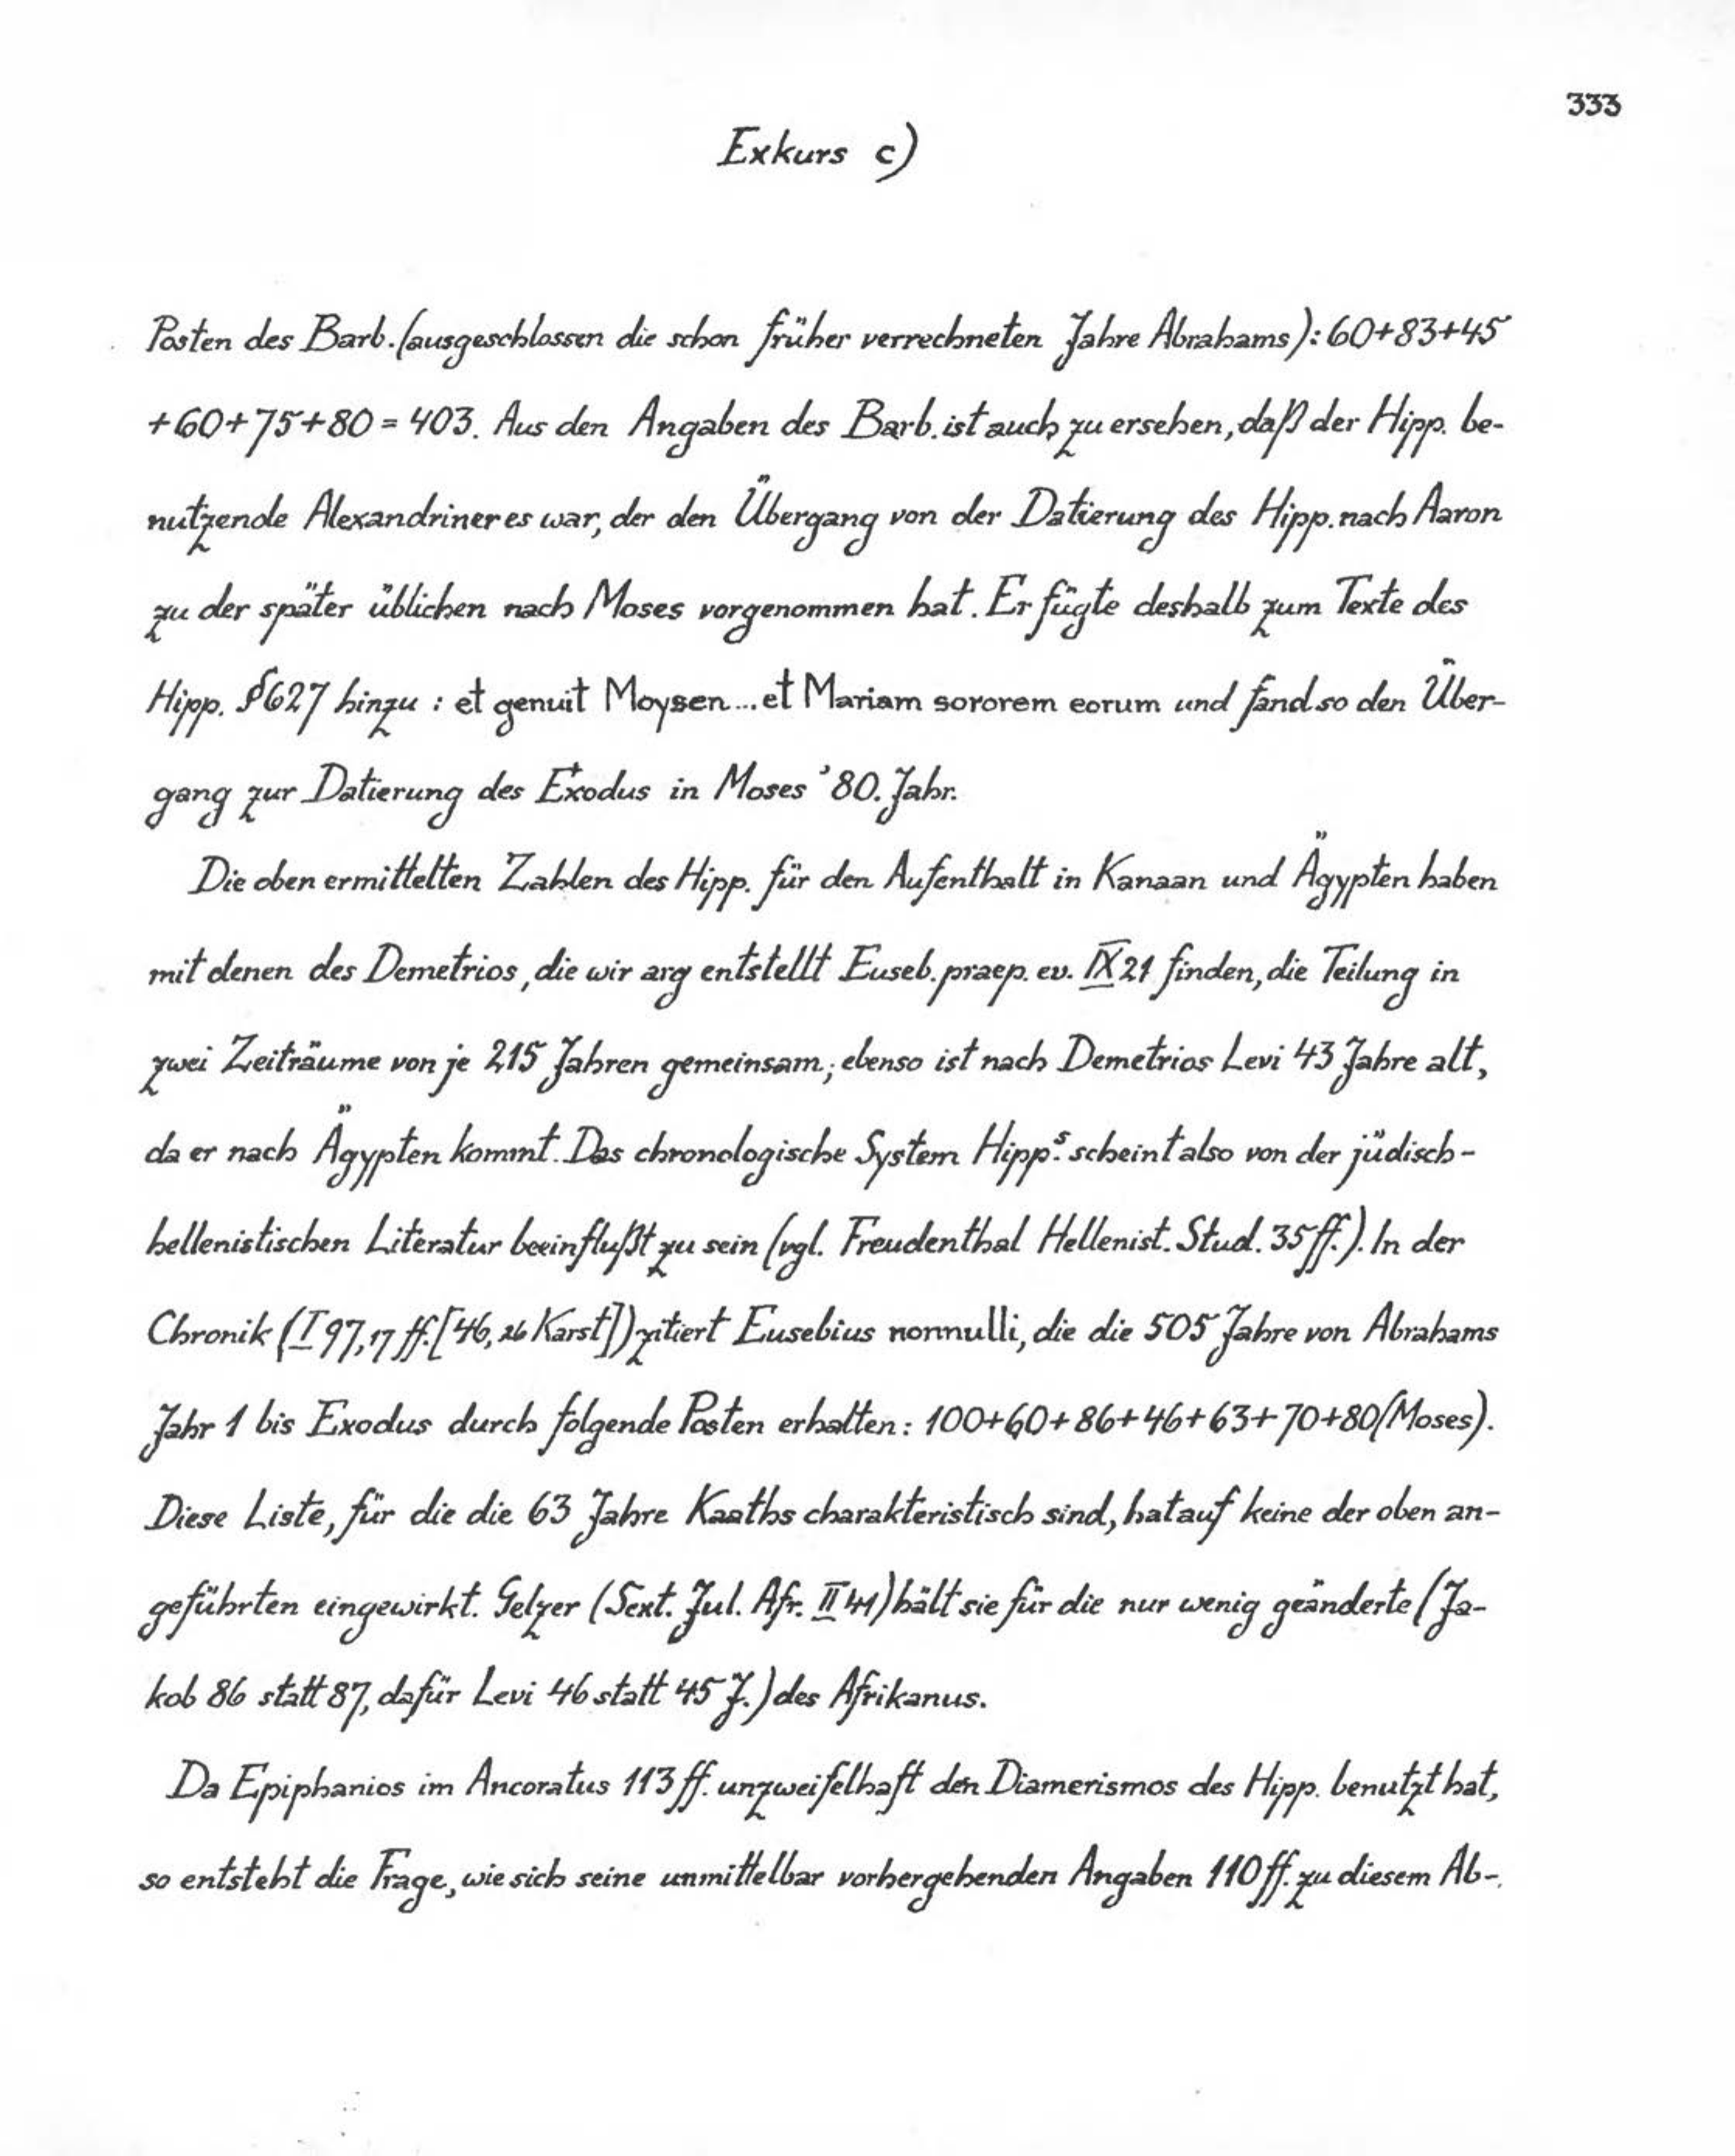 333
Exkurs c)
Posten des Barb. (ausgeschlossen die schon früher verrechneten Jahre Abrahams): 60+83+45
+60+75+80 = 403. Aus den Angaben des Barb. ist auch zu ersehen, daß der Hipp. be-
nutzende Alexandriner es war, der den Übergang von der Datierung des Hipp. nach Aaron
zu der später üblichen nach Moses vorgenommen hat. Er fügte deshalb zum Texte des
Hipp. §627 hinzu : et genuit Moysen ... et Mariam sororem eorum und fand so den Über-
gang zur Datierung des Exodus in Moses' 80. Jahr.
Die oben ermittelten Zahlen des Hipp. für den Aufenthalt in Kanaan und Ägypten haben
mit denen des Demetrios, die wir arg entstellt Euseb. praep. ev. IX 21 finden, die Teilung in
zwei Zeiträume von je 215 Jahren gemeinsam; ebenso ist nach Demetrios Levi 43 Jahre alt,
da er nach Ägypten kommt. Das chronologische System Hipp.s scheint also von der jüdisch-
hellenistischen Literatur beeinflußt zu sein (vgl. Freudenthal Hellenist. Stud. 35 ff.). In der
Chronik (I 97, 17 ff. [46, 26 Karst]) zitiert Eusebius nonnulli, die die 505 Jahre von Abrahams
Jahr 1 bis Exodus durch folgende Posten erhalten: 100+60+86+46+63+70+80 (Moses).
Diese Liste, für die die 63 Jahre Kaaths charakteristisch sind, hat auf keine der oben an-
geführten eingewirkt. Gelzer (Sext. Jul. Afr. II 41) hält sie für die nur wenig geänderte (Ja-
kob 86 statt 87, dafür Levi 46 statt 45 J.) des Afrikanus.
Da Epiphanios im Ancoratus 113 ff. unzweifelhaft den Diamerismos des Hipp. benutzt hat,
so entsteht die Frage, wie sich seine unmittelbar vorhergehenden Angaben 110 ff. zu diesem Ab-